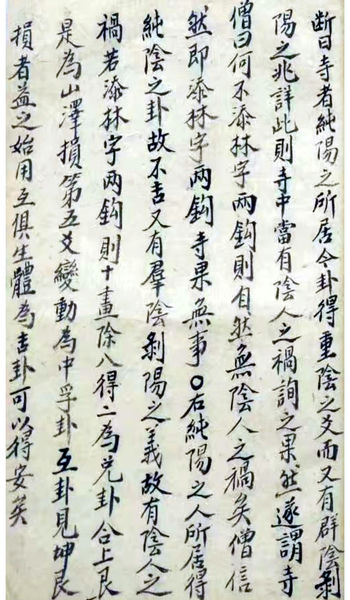 断曰寺者純陽之所居今卦得重陰之爻而又有群陰剝
陽之兆詳此則寺中當有陰人之禍詢之果然遂謂寺
僧曰何不添林字兩鈎則自然無陰人之禍矣僧信
然即添林字兩鈎寺果無事〇右純陽之人所居得
純陰之卦故不吉又有羣陰剝陽之義故有陰人之
禍若添林字兩鈎則十畫除八得二為兌卦合上艮
是為山澤損第五爻變動為中孚卦互卦見坤艮
損者益之始用互俱生體為吉卦可以得安矣